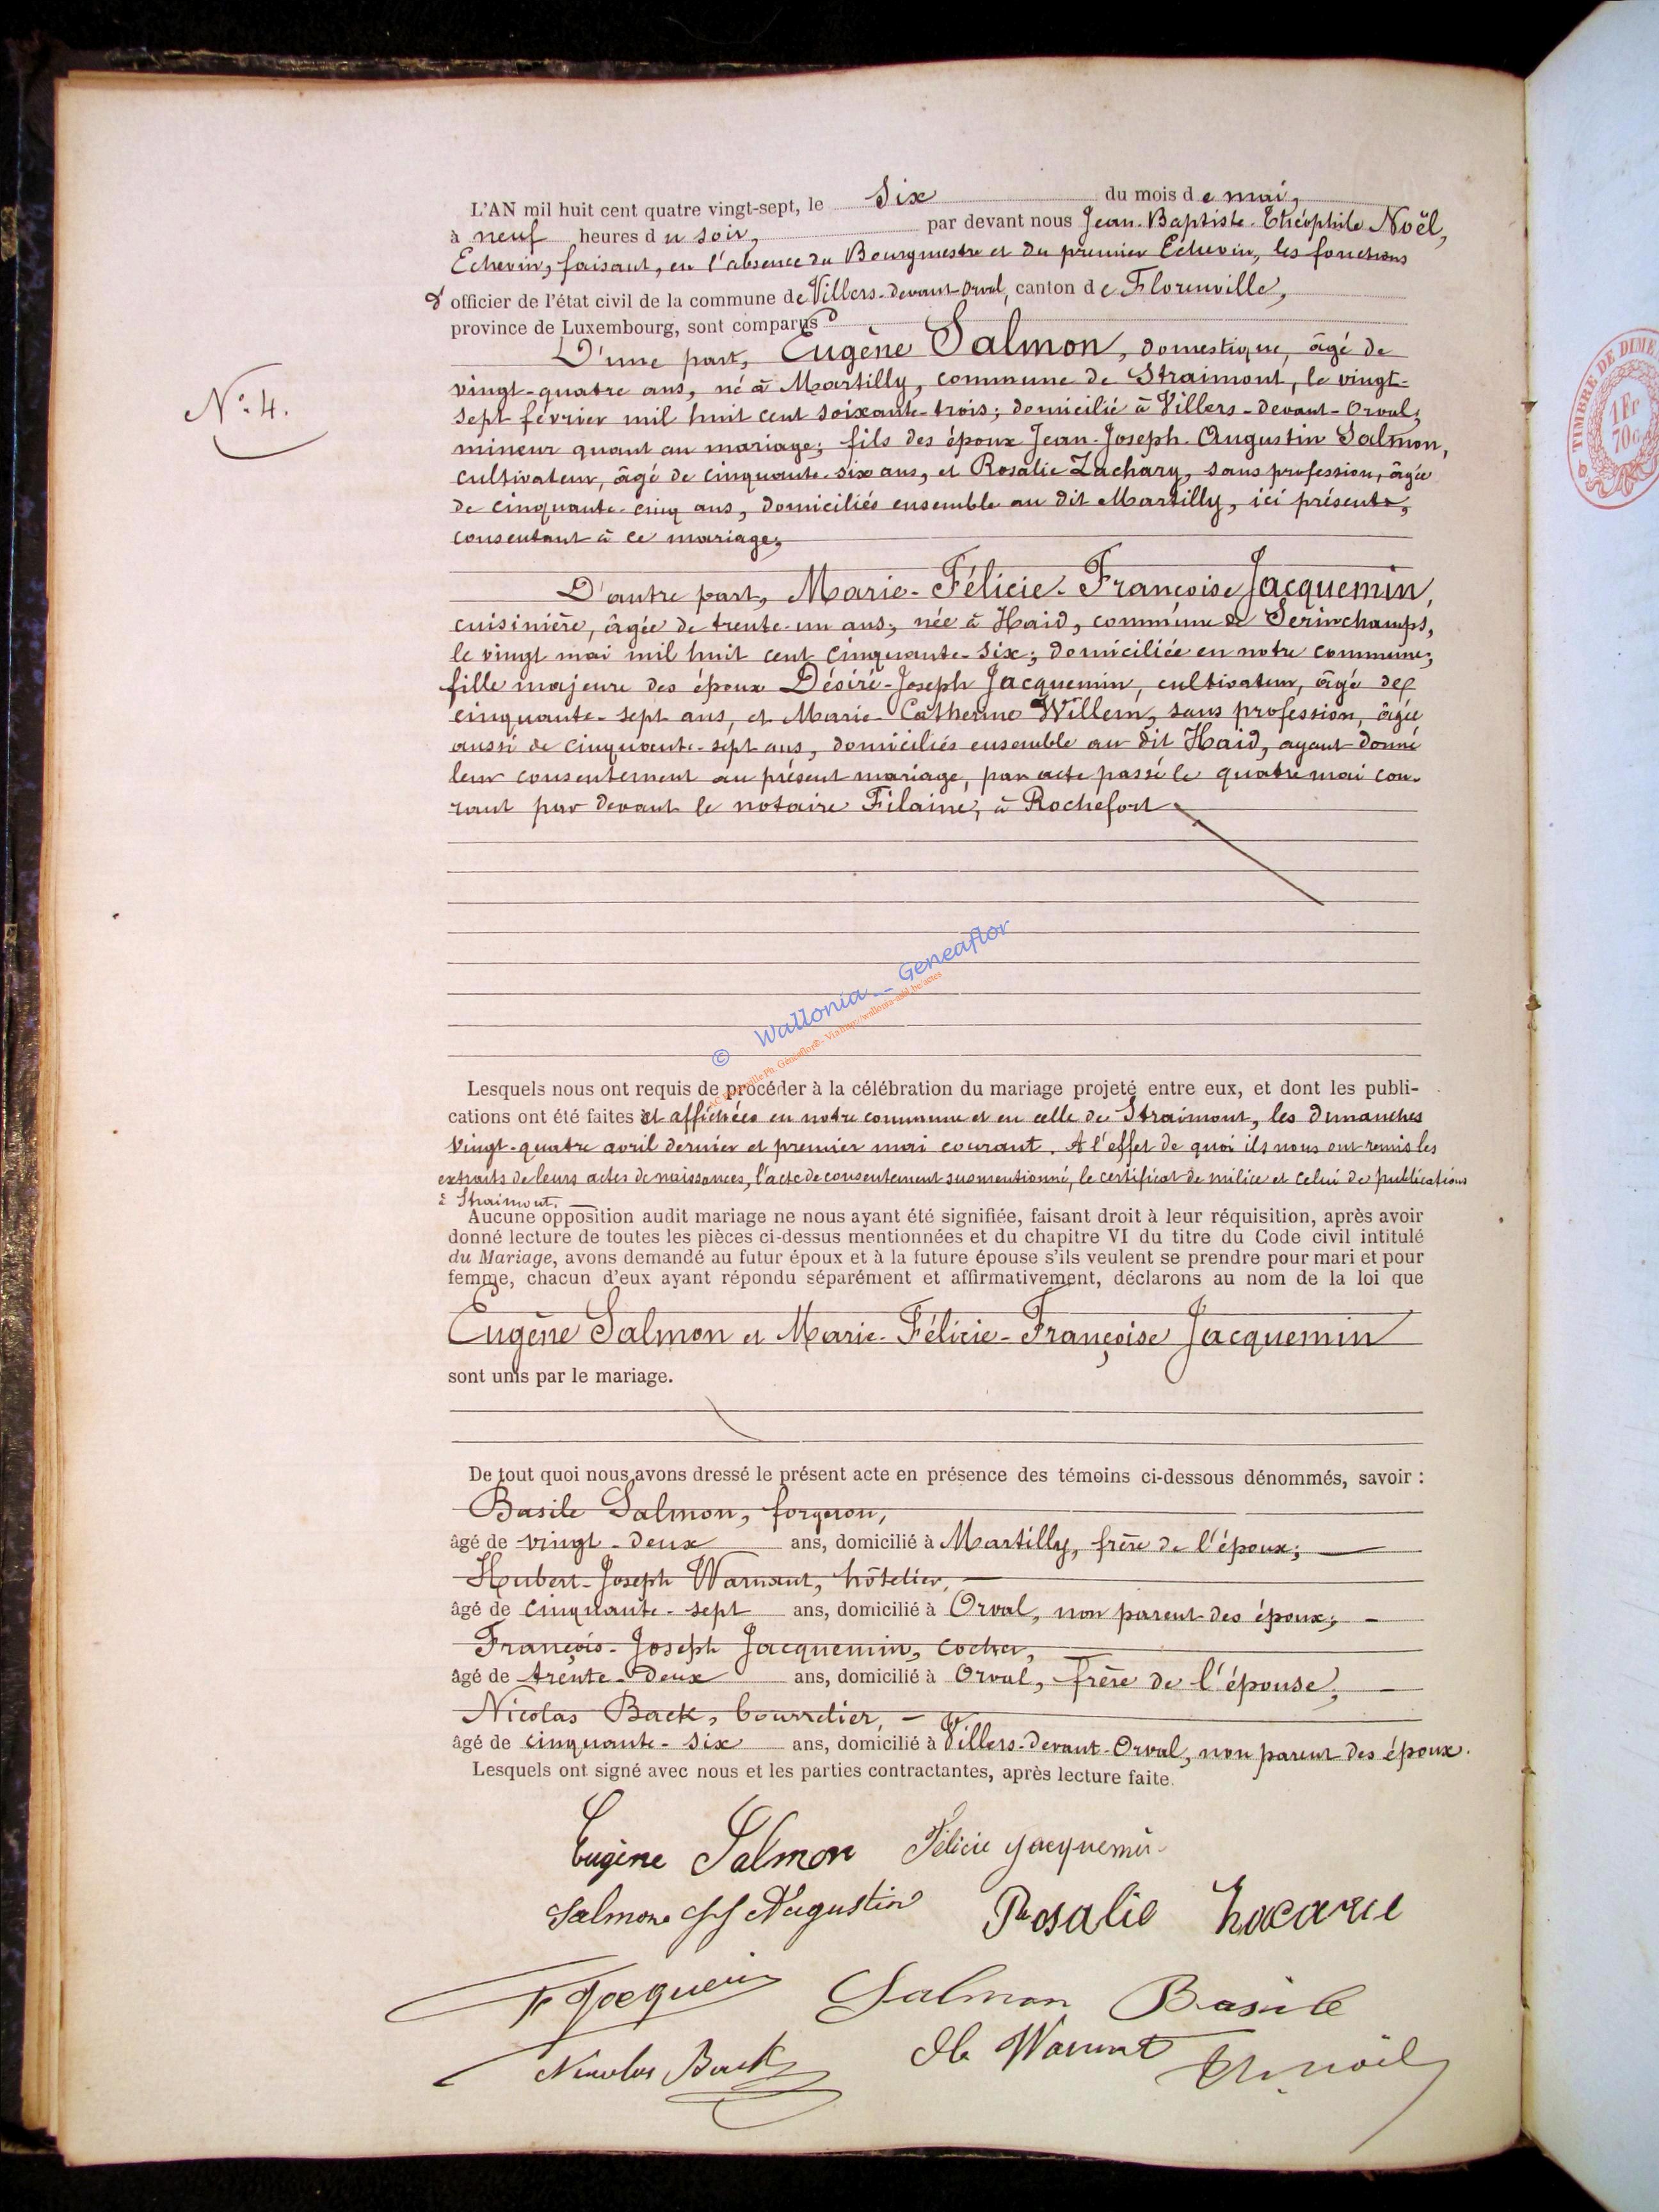 L'AN mil huit cent quatre vingt-sept, le six du mois de mai,
à neuf heures du soir, par devant nous Jean-Baptiste-Théophile Noël,
Echevin, faisant, en l'absence du Bourgmestre et du premier Echevin, les fonctions
d' officier de l'état civil de la commune de Villers-devant-Orval, canton de Florenville,
province de Luxembourg, sont comparus
D'une part, Eugène Salmon, domestique, âgé de
N° 4.
vingt-quatre ans, né à Martilly, commune de Straimont, le vingt-
sept février mil huit cent soixante-trois; domicilié à Villers-devant-Orval;
mineur quant au mariage; fils des époux Jean-Joseph-Augustin Salmon,
cultivateur, âgé de cinquante-six ans, et Rosalie Zachary, sans profession, âgée
de cinquante-cinq ans, domiciliés ensemble au dit Martilly, ici présents,
consentant à ce mariage;
D'autre part, Marie-Félicie-Françoise Jacquemin,
cuisinière, âgée de trente-un ans; née à Haid, commune de Serinchamps,
le vingt mai mil huit cent cinquante-six; domiciliée en notre commune;
fille majeure des époux Désiré-Joseph Jacquemin, cultivateur, âgé de
cinquante-sept ans, et Marie-Catherine Willem, sans profession, âgée
aussi de cinquante-sept ans, domiciliés ensemble au dit Haid, ayant donné
leur consentement au présent mariage, par acte passé le quatre mai cou-
rant par devant le notaire Filaine, à Rochefort
© Wallonia__Geneaflor
Lesquels nous ont requis de procéder à la célébration du mariage projeté entre eux, et dont les publi-
cations ont été faites et affichées en notre commune et en celle de Straimont, les dimanches
vingt-quatre avril dernier et premier mai courant. A l'effet de quoi ils nous ont remis les
extraits de leurs actes de naissances, l'acte de consentement susmentionné, le certificat de milice et celui de publications
à Straimont.
Aucune opposition audit mariage ne nous ayant été signifiée, faisant droit à leur réquisition, après avoir
donné lecture de toutes les pièces ci-dessus mentionnées et du chapitre VI du titre du Code civil intitulé
du Mariage, avons demandé au futur époux et à la future épouse s'ils veulent se prendre pour mari et pour
femme, chacun d'eux ayant répondu séparément et affirmativement, déclarons au nom de la loi que
Eugène Salmon et Marie-Félicie-Françoise Jacquemin
sont unis par le mariage.
De tout quoi nous avons dressé le présent acte en présence des témoins ci-dessous dénommés, savoir :
Basile Salmon, forgeron,
âgé de vingt-deux ans, domicilié à Martilly, frère de l'époux;
Hubert-Joseph Warnant, hôtelier,
âgé de cinquante-sept ans, domicilié à Orval, non parent des époux;
François-Joseph Jacquemin, cocher,
âgé de trente-deux ans, domicilié à Orval, frère de l'épouse;
Nicolas Back, bourrelier,
âgé de cinquante-six ans, domicilié à Villers-devant-Orval, non parent des époux.
Lesquels ont signé avec nous et les parties contractantes, après lecture faite.
Eugène Salmon Félicie Jacquemin
Salmon JJ Augustin Rosalie Zacarie
F Jacquemin Salmon Basile
Nicolas Back Hb Warnant Th. Noël
TIMBRE DE DIME
1 Fr
70 c.